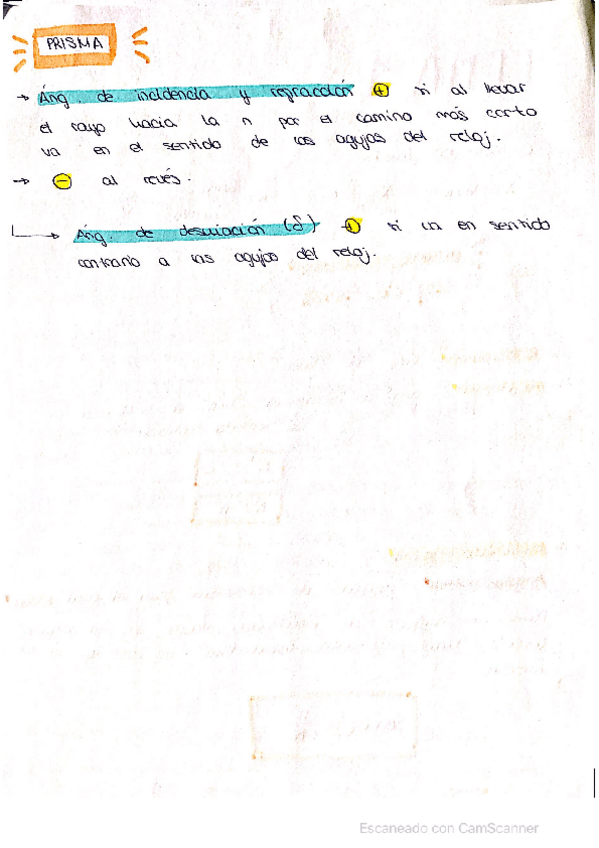 PRISMA
→ Áng. de incidencia y refracción + si al llevar
el rayo hacia la n por el camino más corto
va en el sentido de las agujas del reloj.
→ - al revés.
→ Áng. de desviación (δ) → + si va en sentido
contrario a las agujas del reloj.
Escaneado con CamScanner